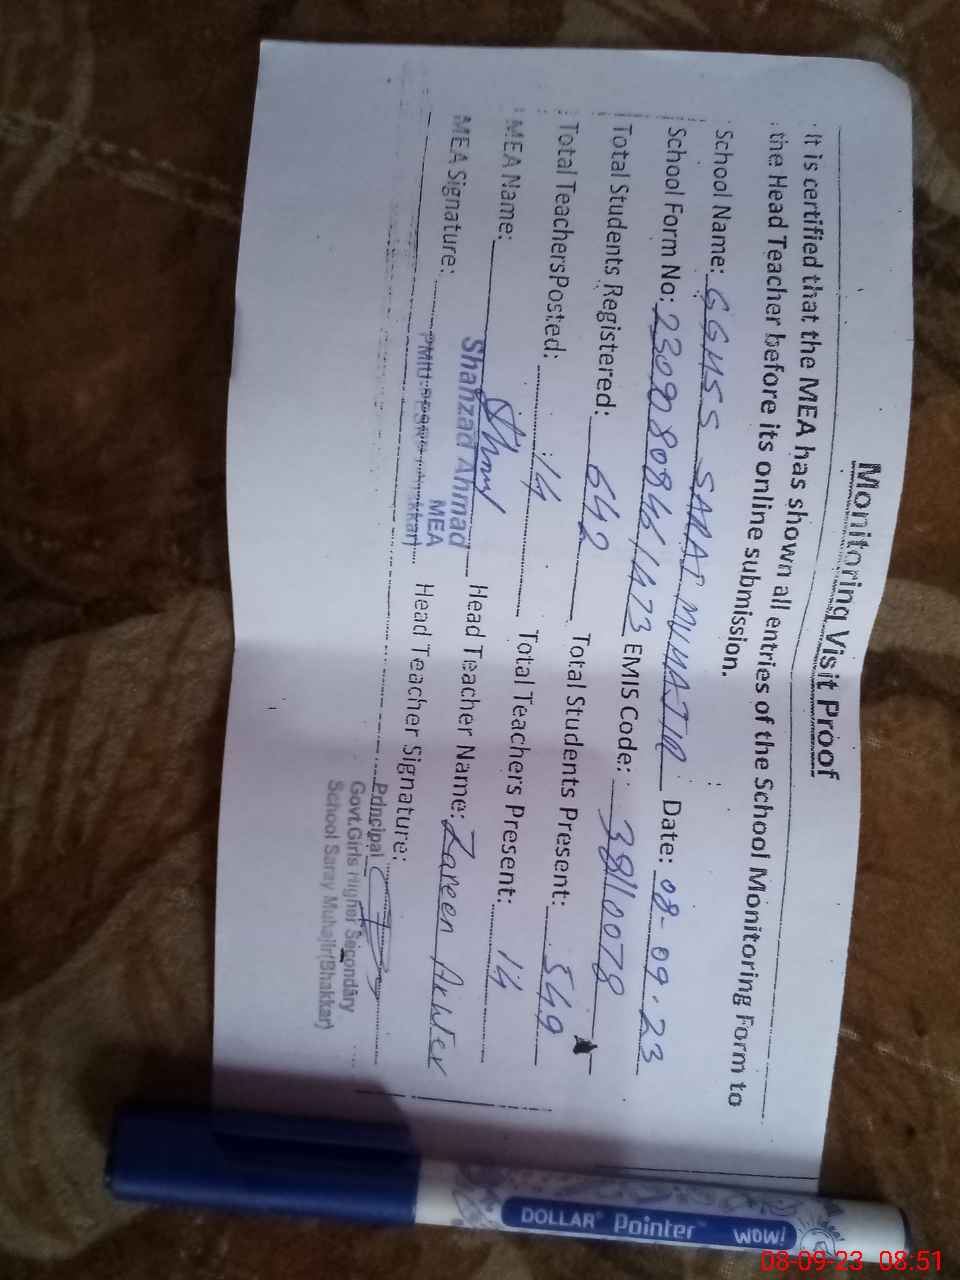 Monitoring Visit Proof
It is certified that the MEA has shown all entries of the School Monitoring Form to
the Head Teacher before its online submission.
School Name: GGHSS SARAI MUHAJIR Date: 08-09-23
School Form No: EMIS Code: 38110078
Total Students Registered: 642 Total Students Present: 549
Total TeachersPosted: 14 Total Teachers Present: 14
MEA Name: Shahzad Ahmad Head Teacher Name: Zareen Akhter
MEA
MEA Signature: Head Teacher Signature:
Principal
Govt.Girls Higher Secondary
School Saray Muhajir(Bhakkar)
DOLLAR Pointer WOW!
08-09-23 08:51